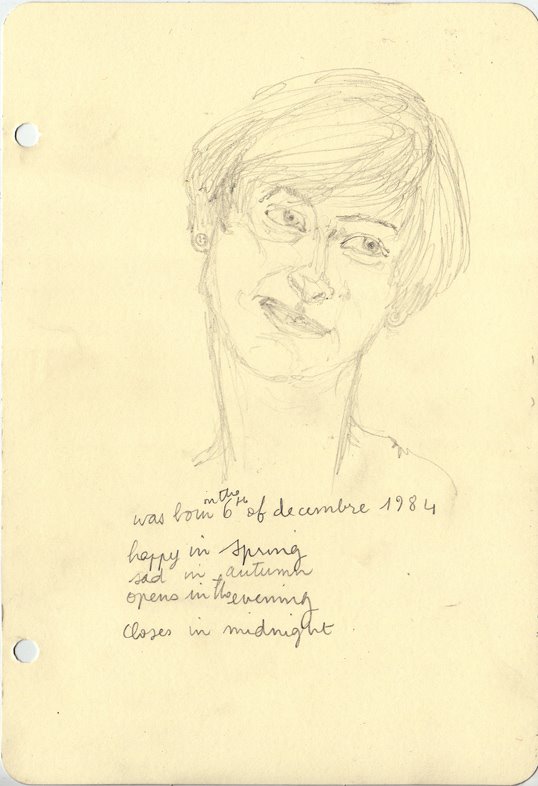 was born in the 6th of decembre 1984
happy in spring
sad in autumn
opens in the evening
closes in midnight